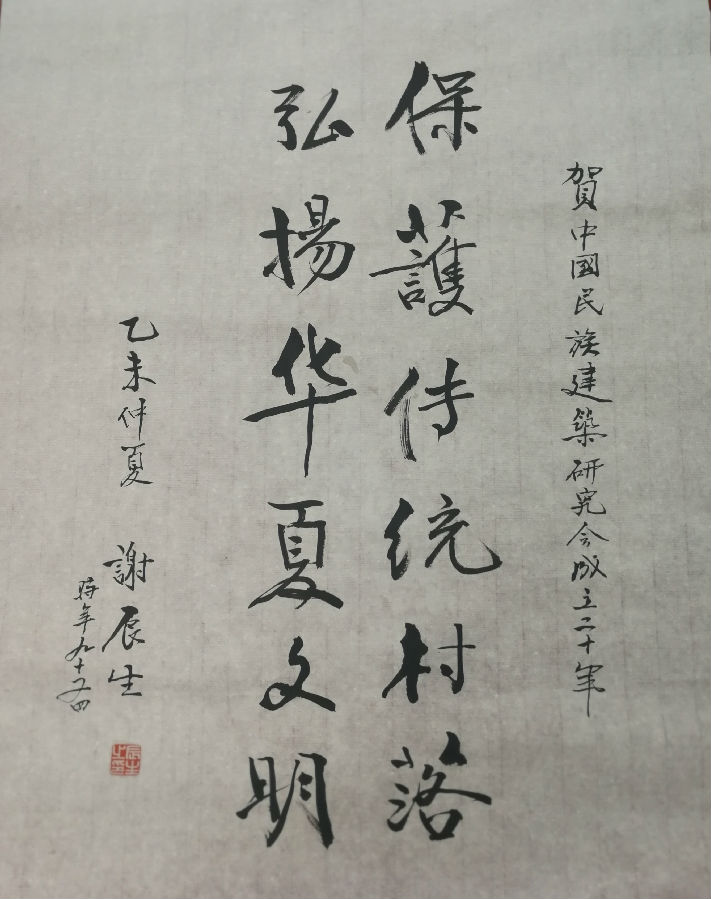 賀中國民族建築研究会成立二十年
保護传统村落
弘揚华夏文明
乙未仲夏
謝辰生
時年九十又四
辰生之印